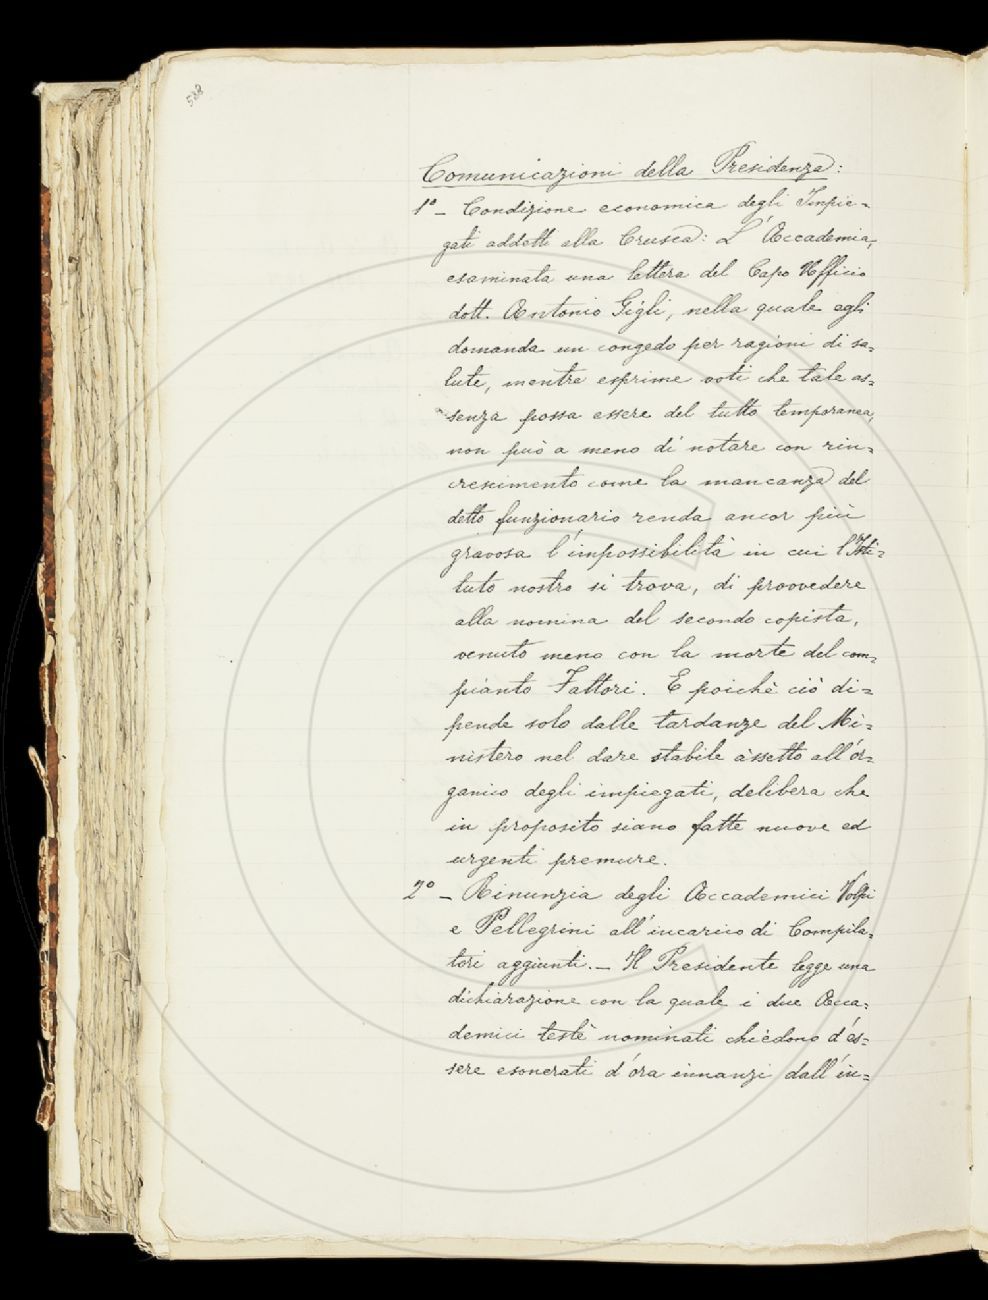 588
Comunicazioni della Presidenza:
1° – Condizione economica degli Impie=
gati addetti alla Crusca: L'Accademia,
esaminata una lettera del Capo Ufficio
dott. Antonio Gigli, nella quale egli
domanda un congedo per ragioni di sa=
lute, mentre esprime voti che tale as=
senza possa essere del tutto temporanea,
non può a meno di notare con rin=
crescimento come la mancanza del
detto funzionario renda ancor più
gravosa l'impossibilità in cui l'Isti=
tuto nostro si trova, di provvedere
alla nomina del secondo copista,
venuto meno con la morte del com=
pianto Fattori. E poichè ciò di=
pende solo dalle tardanze del Mi=
nistero nel dare stabile assetto all'or=
ganico degli impiegati, delibera che
in proposito siano fatte nuove ed
urgenti premure.
2° – Rinunzia degli Accademici Volpi
e Pellegrini all'incarico di Compila=
tori aggiunti. – Il Presidente legge una
dichiarazione con la quale i due Acca=
demici testè nominati chiedono d'es=
sere esonerati d'ora innanzi dall'in=